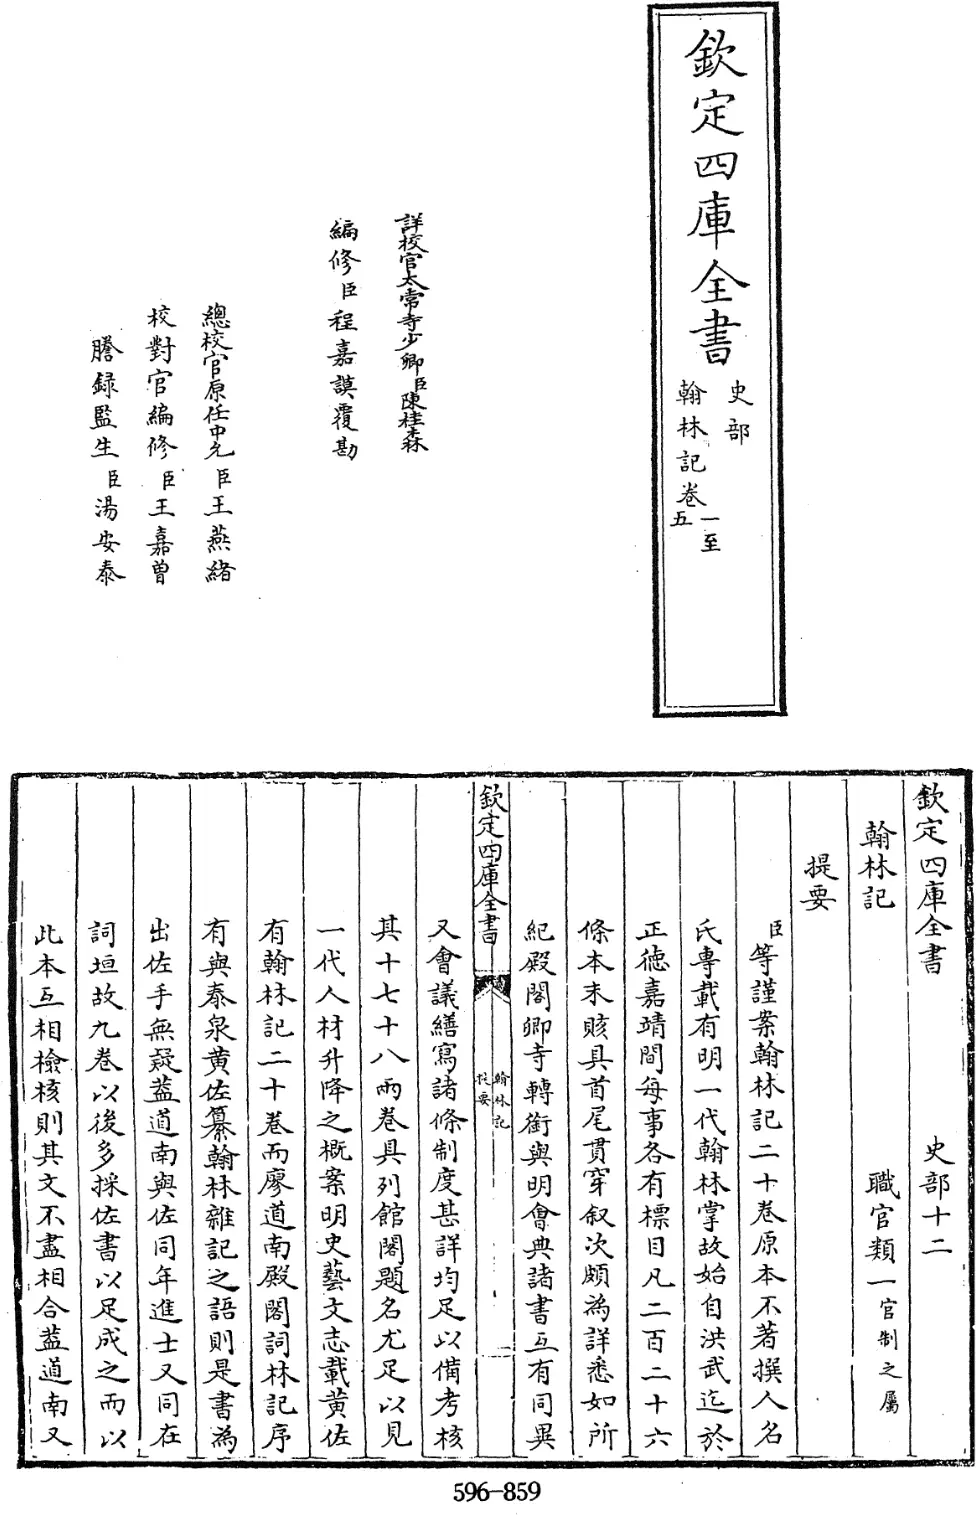 欽定四庫全書
史部
翰林記卷一至五
詳校官太常寺少卿臣陳桂森
編修臣程嘉謨覆勘
總校官原任中允臣王燕緒
校對官編修臣王嘉曾
謄録監生臣湯安泰
欽定四庫全書 史部十二
翰林記 職官類一官制之屬
提要
臣等謹案翰林記二十卷原本不著撰人名
氏専載有明一代翰林掌故始自洪武迄於
正徳嘉靖間每事各有標目凡二百二十六
條本末賅具首尾貫穿叙次頗為詳悉如所
紀殿閣卿寺轉銜與明㑹典諸書互有同異
欽定四庫全書
翰林記
提要
又會議繕寫諸條制度甚詳均足以備考核
其十七十八兩卷具列館閣題名尤足以見
一代人材升降之概案明史藝文志載黄佐
有翰林記二十卷而廖道南殿閣詞林記序
有與泰泉黄佐纂翰林雜記之語則是書為
出佐手無疑葢道南與佐同年進士又同在
詞垣故九卷以後多採佐書以足成之而以
此本互相檢核則其文不盡相合葢道南又
596-859